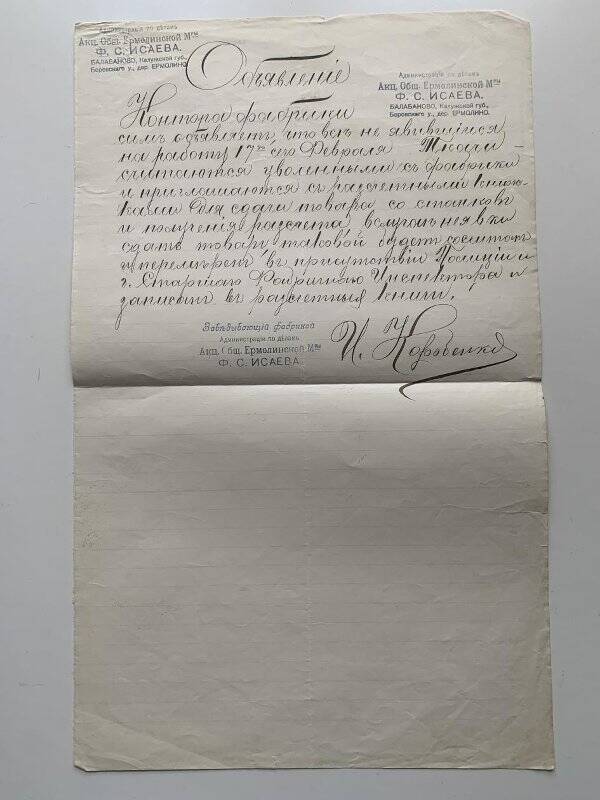 Администрація по дѣламъ
Акц. Общ. Ермолинской М-ры
Ф. С. ИСАЕВА.
БАЛАБАНОВО, Калужской губ.,
Боровскаго у., дер. ЕРМОЛИНО.
Администрація по дѣламъ
Акц. Общ. Ермолинской М-ры
Ф. С. ИСАЕВА.
БАЛАБАНОВО, Калужской губ.,
Боровскаго у., дер. ЕРМОЛИНО.
Объявленіе
Контора фабрики
симъ объявляетъ, что всѣ не явившіеся
на работу 17го сего Февраля Ткачи
считаются уволенными съ фабрики
и приглашаются съ разсчетными книж-
ками для сдачи товара со станковъ
и полученія разсчета, въ случаѣ неявки
сдать товаръ таковой будетъ сосчитанъ
и перемѣренъ въ присутствіи Полиціи и
г. Старшаго Фабричнаго Инспектора и
записанъ въ разсчетныя книги.
Завѣдывающій фабрикой
Администрація по дѣламъ
Акц. Общ. Ермолинской М-ры
Ф. С. ИСАЕВА.
И. Коровенко